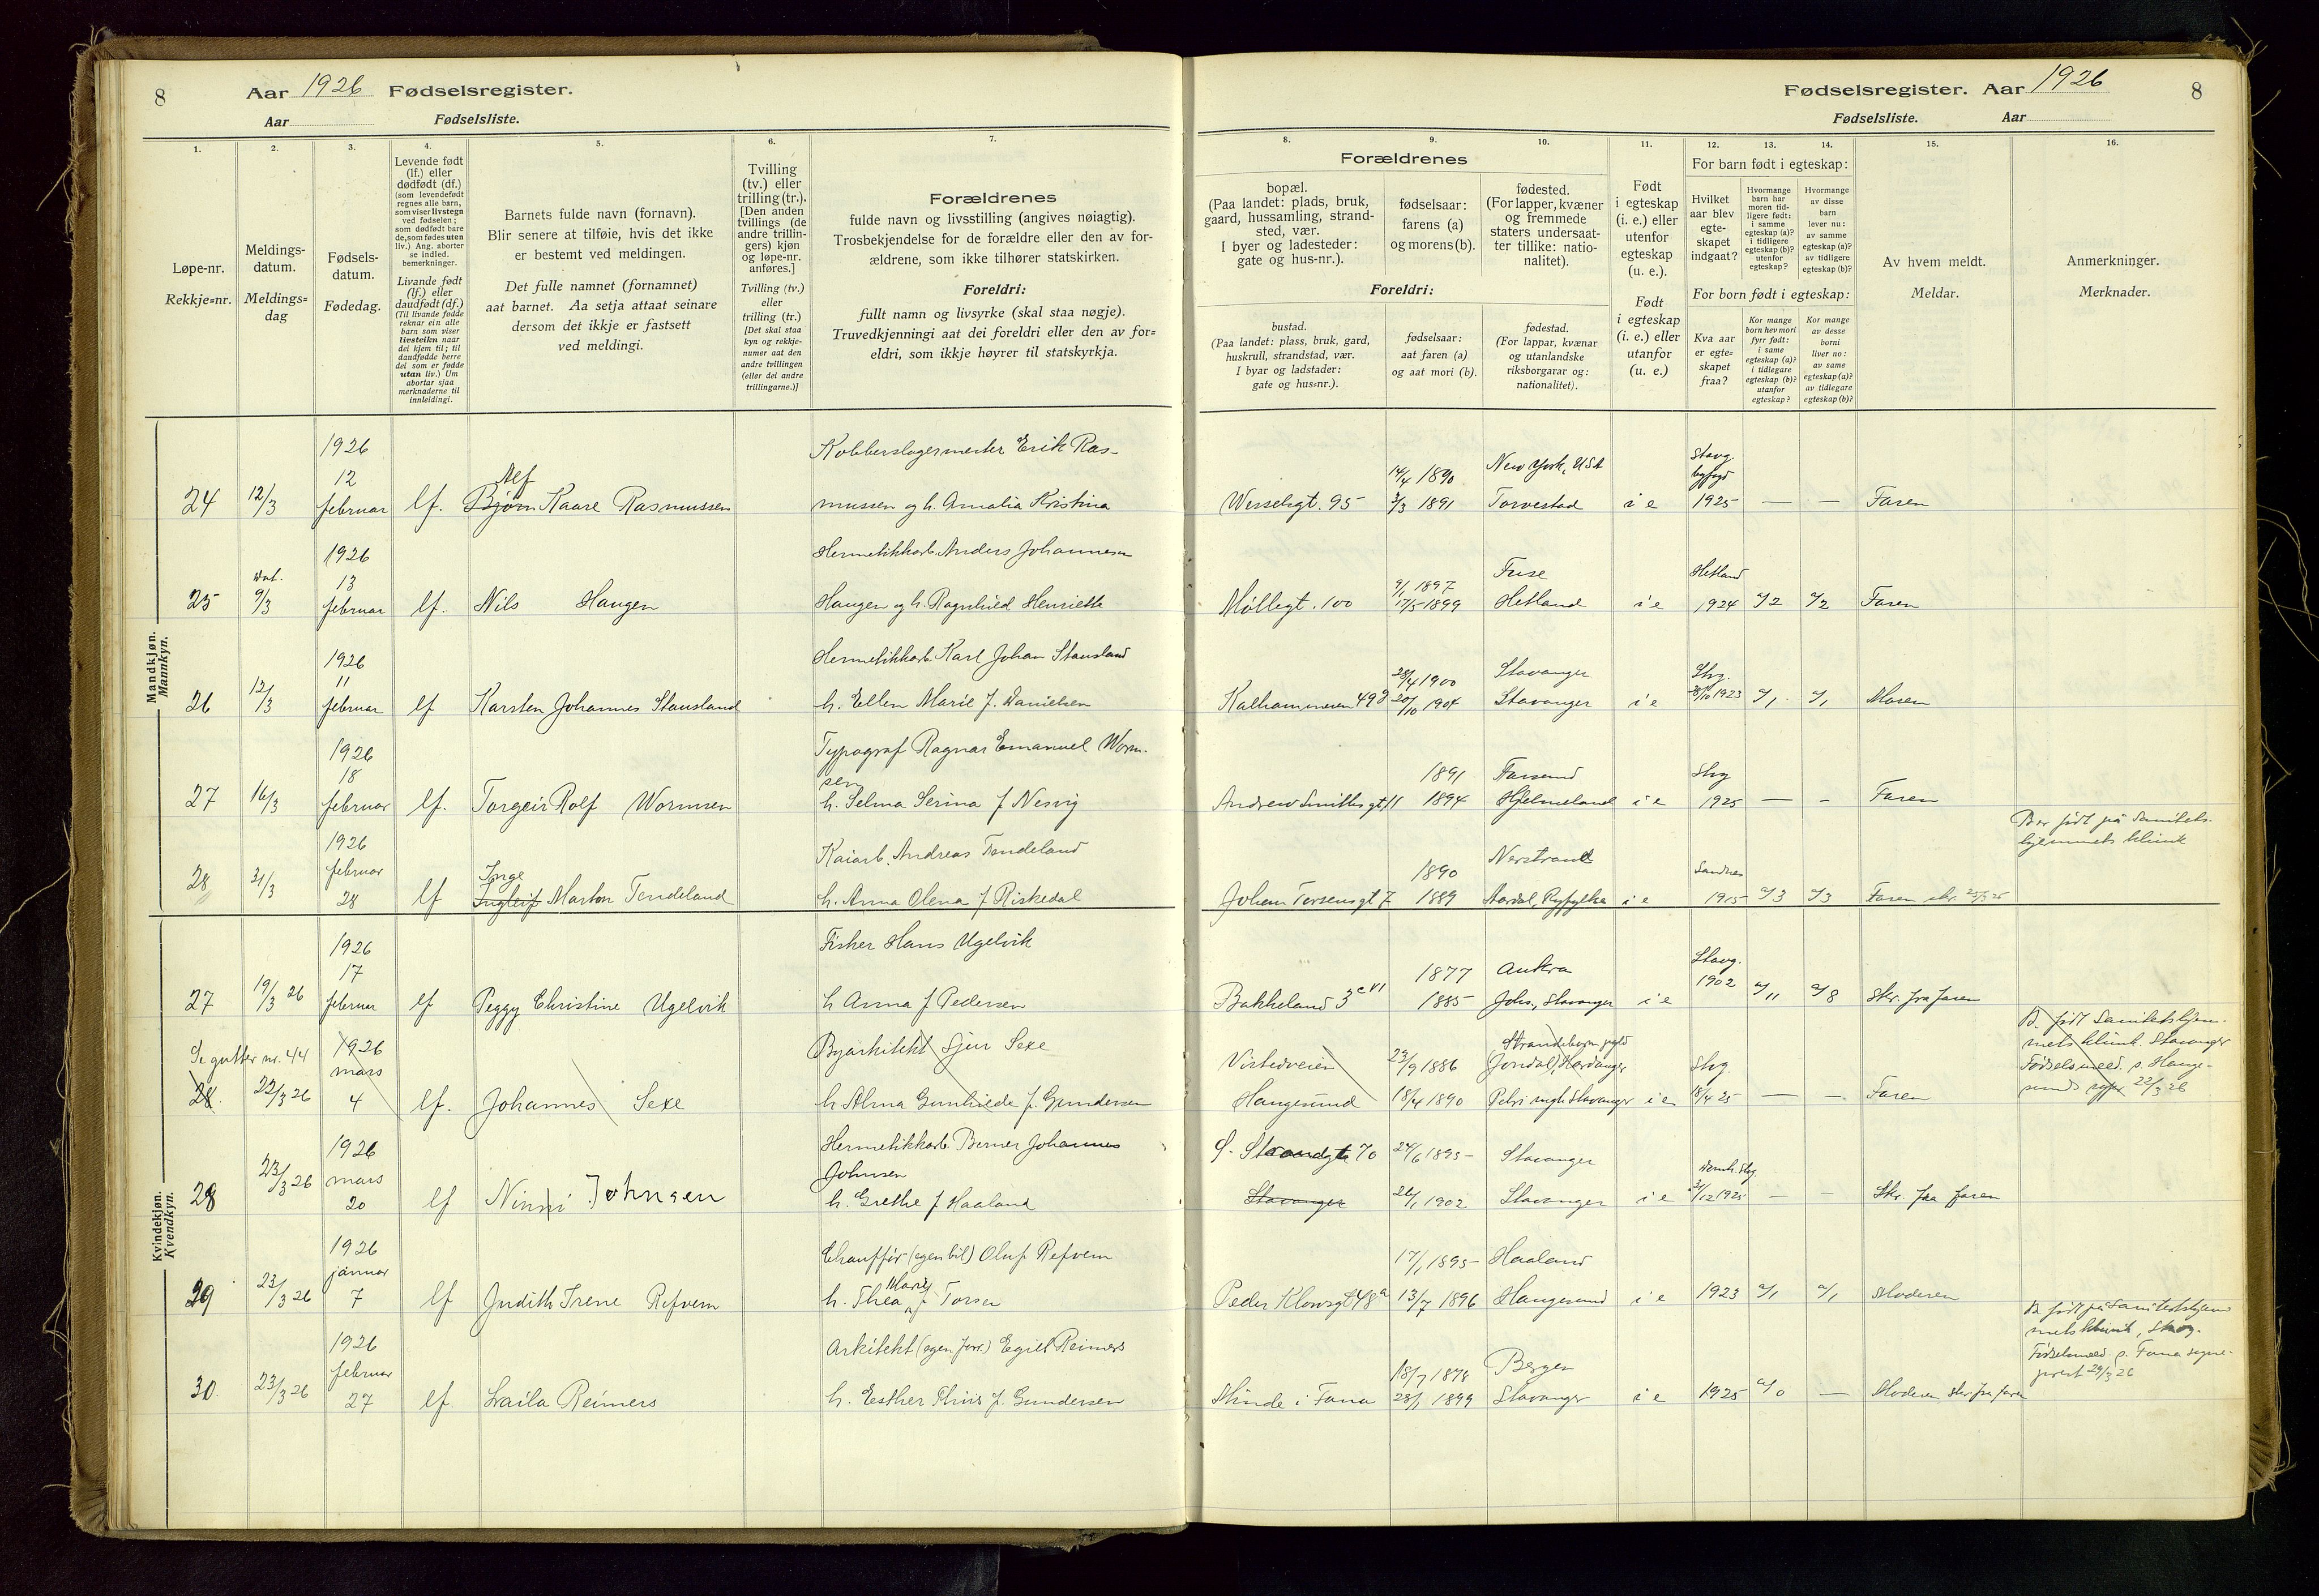 8
Aar 1926 Fødselsregister.
Aar Fødselsliste.
1. 2. 3. 4. 5. 6. 7.
Løpe-nr.
Rekkje=nr.
Meldings-
datum.
Meldings=
dag
Fødsels-
datum.
Fødedag.
Levende født
(lf.) eller
dødfødt (df.)
(som levendefødt
regnes alle barn,
som viser livstegn
ved fødselen;
som dødfødt bare
de, som fødes uten
liv.) Ang. aborter
se indled.
bemerkninger.
Livande født
(lf.) eller
daudfødt (df.)
(Til livande fødde
reknar ein alle
barn som viser
livsteikn naar
dei kjem til; til
daudfødde berre
dei som er fødde
utan liv.) Um
abortar sjaa
merknaderne til
innleidingi.
Barnets fulde navn (fornavn).
Blir senere at tilføie, hvis det ikke
er bestemt ved meldingen.
Det fulle namnet (fornamnet)
aat barnet. Aa setja attaat seinare
dersom det ikkje er fastsett
ved meldingi.
Tvilling
(tv.) eller
trilling (tr.).
[Den anden
tvillings (de
andre trillin-
gers) kjøn
og løpe-nr.
anføres.]
Tvilling (tv.)
eller
trilling (tr.)
[Det skal staa
kyn og rekkje-
numer aat den
andre tvillingen
(eller dei andre
trillingarne.)]
Forældrenes
fulde navn og livsstilling (angives nøiagtig).
Trosbekjendelse for de forældre eller den av for-
ældrene, som ikke tilhører statskirken.
Foreldri:
fullt namn og livsyrke (skal staa nøgje).
Truvedkjenningi aat dei foreldri eller den av for=
eldri, som ikkje høyrer til statskyrkja.
Mandkjøn.
Mannkyn.
1926
12
24 12/3 februar lf. Bjørn Alf Kaare Rasmussen
Kobberslagermester Erik Ras-
mussen og h. Amalia Kristina
1926
13
25 9/3 februar lf. Nils Haugen
Hermetikkarb. Anders Johannesen
Haugen og h. Ragnhild Henriette
1926
11
26 12/3 februar lf Karsten Johannes Stausland
Hermetikkarb. Karl Johan Stausland
h. Ellen Marie f. Danielsen
1926
18
27 16/3 februar lf. Torgeir Rolf Wormsen
Typograf Ragnar Emanuel Worm-
sen
h. Selma Serina f Nesvig
1926
februar
28 31/3 28 lf Ingleif Inge Marton Tendeland
Kaiarb. Andreas Tendeland
h. Anna Olena f Riskedal
Kvindekjøn.
Kvendkyn.
1926
17
27 19/3 26 februar lf Peggy Christine Ugelvik
Fisker Hans Ugelvik
h Anna f Pedersen
Se gutter nr. 44
1926
mars
28. 22/3 26 4 lf. Johannes Sexe
Byarkitekt Sjur Sexe
h Alma Gunhilde f. Gundersen
1926
mars
28 23/3 26 20 lf Ninni Johnsen
Hermetikkarb. Berner Johannes
Johnsen
h. Grethe f Haaland
1926
januar
29 23/3 26 7 lf Judith Irene Refvem
Chauffør (egen bil) Oluf Refvem
h. Thea Marie f Torsen
1926
februar
30. 23/3 26 27 lf Laila Reimers
Arkitekt (egen forr.) Egill Reimers
h. Esther Thiis f. Gundersen
Fødselsregister. Aar 1926
8
Fødselsliste. Aar
8. 9. 10. 11. 12. 13. 14. 15. 16.
Forældrenes
bopæl.
(Paa landet: plads, bruk,
gaard, hussamling, strand-
sted, vær.
I byer og ladesteder:
gate og hus-nr.).
fødselsaar:
farens (a)
og morens (b).
fødested.
(For lapper, kvæner
og fremmede
staters undersaat-
ter tillike: natio-
nalitet).
Foreldri:
bustad.
(Paa landet: plass, bruk, gard,
huskrull, strandstad, vær.
I byar og ladstader:
gate og hus=nr.).
fødselsaar:
aat faren (a)
og aat mori (b).
fødestad.
(For lappar, kvænar
og utanlandske
riksborgarar og:
nationalitet).
Født
i egteskap
(i. e.) eller
utenfor
egteskap
(u. e.).
Født
i egteskap
(i. e.) eller
utanfor
(u. e.)
For barn født i egteskap:
Hvilket
aar blev
egte-
skapet
indgaat?
Hvormange
barn har
moren tid-
ligere født:
i samme
egteskap (a)?
i tidligere
egteskap (b)?
utenfor
egteskap?
Hvormange
av disse
barn
lever nu:
av samme
egteskap (a)?
av tidligere
egteskap (b)?
For born født i egteskap:
Kva aar
er egte=
skapet
fraa?
Kor mange
born hev mori
fyrr født:
i same
egteskap (a)?
i tidlegare
egteskap (b)?
utanfor
egteskap?
Kor mange
av desse
borni
liver no:
av same
egteskap (a)?
av tidlegare
egteskap (b)?
Av hvem meldt.
Meldar.
Anmerkninger.
Merknader.
14/4 1890 New York, USA Stavg.
Wesselsgt. 95 3/3 1891 Torvestad i e 1925 — — Faren
9/1 1897 Fuse Hetland
Møllegt. 100 17/5 1899 Hetland i e 1924 a/2 a/2 Faren
28/4 1900 Stavanger Stvg.
Kalhammeren 49 20/10 1904 Stavanger i e 1923 a/1 a/1 Moren
1891 Farsund Stvg
Andrew Smithsgt 11 1894 Hjelmeland i e 1925 — — Faren
B er født på Sanitets-
hjemmets klinik
1890 Nerstrand Sandnes
Johan Torsensgt 7 1889 Aardal, Ryfylke i e 1915 a/3 a/3 Faren skr. 25/3 26
1877 Aukra Stavg.
1902
Bakkeland 3 1885 Johs., Stavanger i e a/11 a/8 Skr. fra faren
Virtedveien 23/9 1886 Jondal, Hardanger Stvg.
Haugesund 18/4 1890 Petri, Stavanger i e 18/4 25 — — Faren
B. født Sanitetshjem-
mets klinik. Stavanger
Fødselsmeld. s. Hauge-
sunds 22/3 26
S. Strandgt 70 24/6 1895 Stavanger
Stavanger 26/1 1902 Stavanger i e 31/12 1925 — — Skr. fra faren
17/1 1895 Haaland
Peder Klowsgt 48a 13/7 1896 Haugesund i e 1923 a/1 a/1 Moderen
18/7 1878 Bergen
Minde i Fana 28/1 1899 Stavanger i e 1925 a/0 — Moderen, skr. fra faren
B. født på Sanitetshjem
mets klinik, Stvg.
Fødselsmeld. s. Fana sogne-
prest 29/3 26